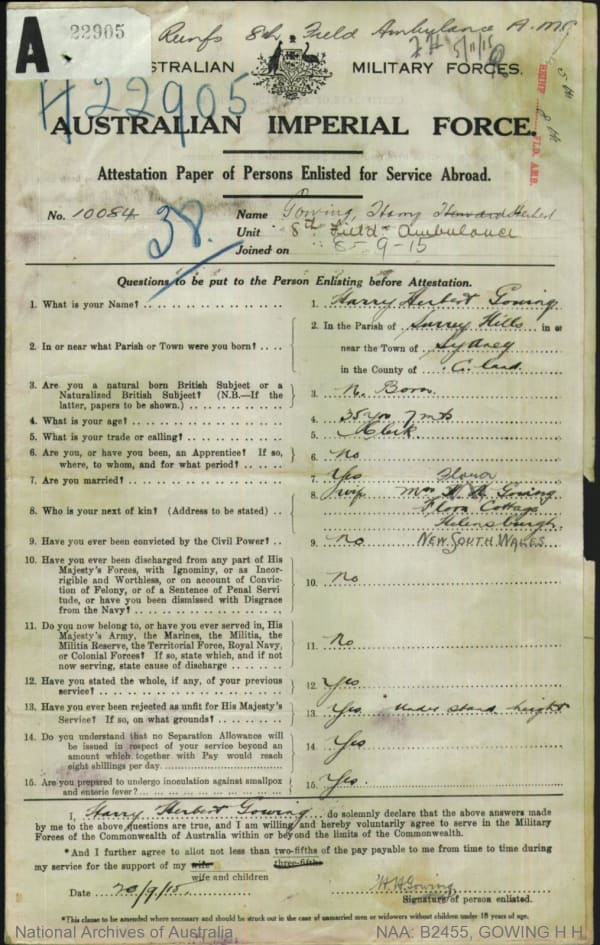 A
22905
Reinfs 8th Field Ambulance A.M.C.
5/11/15
AUSTRALIAN MILITARY FORCES.
H22905
AUSTRALIAN IMPERIAL FORCE.
Attestation Paper of Persons Enlisted for Service Abroad.
No. 10084
38.
Name Gowing, Harry Howard Herbert
Unit 8th Field Ambulance
Joined on 8-9-15
Questions to be put to the Person Enlisting before Attestation.
1. What is your Name? 1. Harry Herbert Gowing
2. In or near what Parish or Town were you born? 2. In the Parish of Surrey Hills in or
near the Town of Sydney
in the County of C. Land
3. Are you a natural born British Subject or a
Naturalized British Subject? (N.B.—If the
latter, papers to be shown.) 3. N. Born
4. What is your age? 4. 35 yrs 7 mts
5. What is your trade or calling? 5. Clerk
6. Are you, or have you been, an Apprentice? If so,
where, to whom, and for what period? 6. No
7. Are you married? 7. Yes
8. Who is your next of kin? (Address to be stated) 8. wife Mrs Gowing
Flora Cottage
Helensburgh
NEW SOUTH WALES
9. Have you ever been convicted by the Civil Power? 9. No
10. Have you ever been discharged from any part of His
Majesty's Forces, with Ignominy, or as Incor-
rigible and Worthless, or on account of Convic-
tion of Felony, or of a Sentence of Penal Servi-
tude, or have you been dismissed with Disgrace
from the Navy? 10. No
11. Do you now belong to, or have you ever served in, His
Majesty's Army, the Marines, the Militia, the
Militia Reserve, the Territorial Force, Royal Navy,
or Colonial Forces? If so, state which, and if not
now serving, state cause of discharge 11. No
12. Have you stated the whole, if any, of your previous
service? 12. Yes
13. Have you ever been rejected as unfit for His Majesty's
Service? If so, on what grounds? 13. Yes. Under stand. height
14. Do you understand that no Separation Allowance will
be issued in respect of your service beyond an
amount which together with Pay would reach
eight shillings per day. 14. Yes
15. Are you prepared to undergo inoculation against smallpox
and enteric fever? 15. Yes.
I, Harry Herbert Gowing do solemnly declare that the above answers made
by me to the above questions are true, and I am willing and hereby voluntarily agree to serve in the Military
Forces of the Commonwealth of Australia within or beyond the limits of the Commonwealth.
*And I further agree to allot not less than two-fifths of the pay payable to me from time to time during
three-fifths
my service for the support of my wife
wife and children
Date 20/9/15. H.H. Gowing
Signature of person enlisted.
*This clause to be amended where necessary and should be struck out in the case of unmarried men or widowers without children under 18 years of age.
National Archives of Australia NAA: B2455, GOWING H H